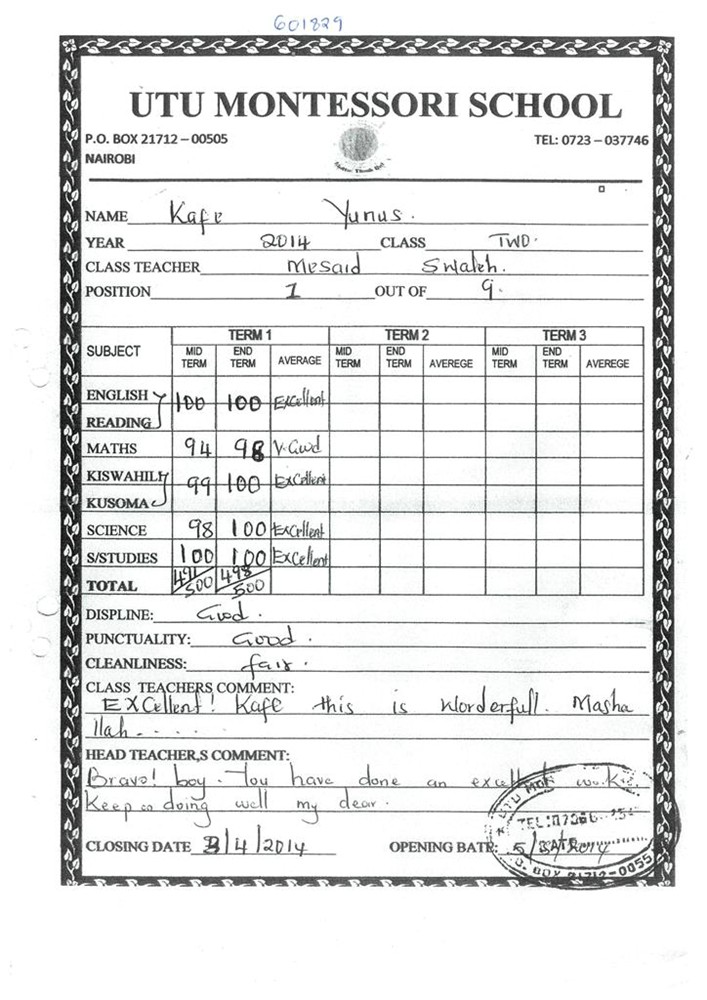 601829
UTU MONTESSORI SCHOOL
P.O. BOX 21712 – 00505 TEL: 0723 – 037746
NAIROBI
NAME Kafe Yunus.
YEAR 2014 CLASS TWO.
CLASS TEACHER Mesaid Swaleh.
POSITION 1 OUT OF 9.
SUBJECT TERM 1 TERM 2 TERM 3
MID TERM END TERM AVERAGE MID TERM END TERM AVEREGE MID TERM END TERM AVEREGE
ENGLISH
READING 100 100 Excellent
MATHS 94 98 V.Good
KISWAHILI
KUSOMA 99 100 Excellent
SCIENCE 98 100 Excellent
S/STUDIES 100 100 Excellent
TOTAL 491/500 498/500
DISPLINE: Good.
PUNCTUALITY: Good.
CLEANLINESS: fair.
CLASS TEACHERS COMMENT:
EXCellent! Kafe this is Worderfull. Masha
llah....
HEAD TEACHER,S COMMENT:
Bravo! boy. You have done an excellent work.
Keep on doing well my dear.
CLOSING DATE 3/4/2014 OPENING DATE: 5/ /2014
TEL:
DATE
P.O. BOX 21712-0055